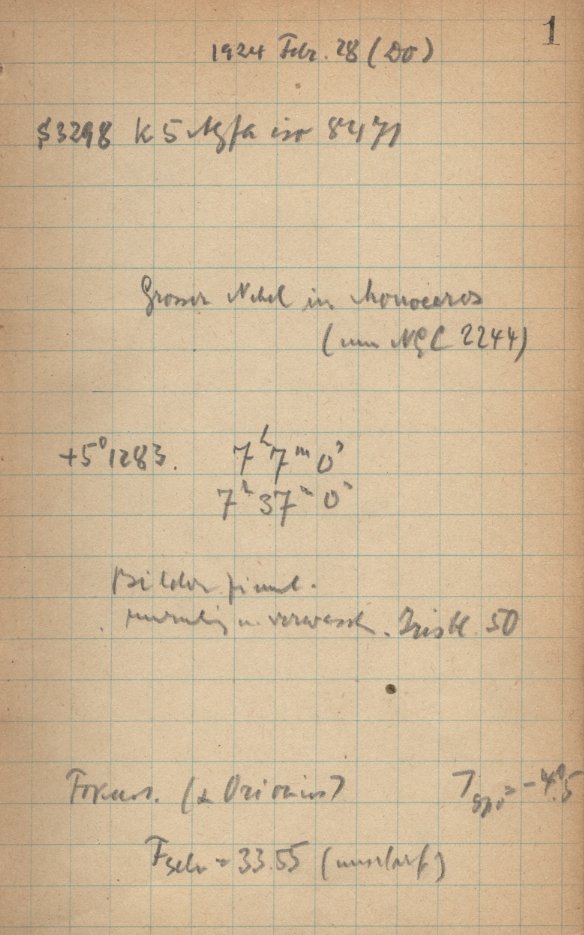 1
1924 Febr. 28 (Do)
S3298 K5 Agfa iso 8471
Grosser Nebel in Monoceros
(um NGC 2244)
+5°1283. 7ʰ7ᵐ0ˢ
7ʰ37ᵐ0ˢ
Bilder zieml.
unruhig u. verwasch. 50
Fokus. (α Orionis) = -4°,5
= 33.55 (unscharf)